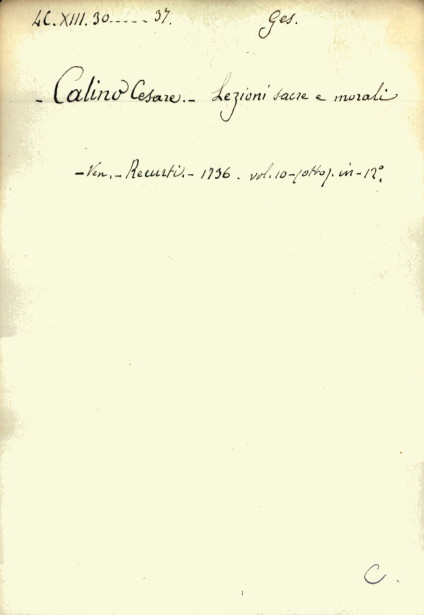 4C.XIII.30.----37. Ges.
- Calino Cesare. - Lezioni sacre e morali
- Ven. - Recurti. - 1736. vol. 10 - (otto). in - 12°.
C.